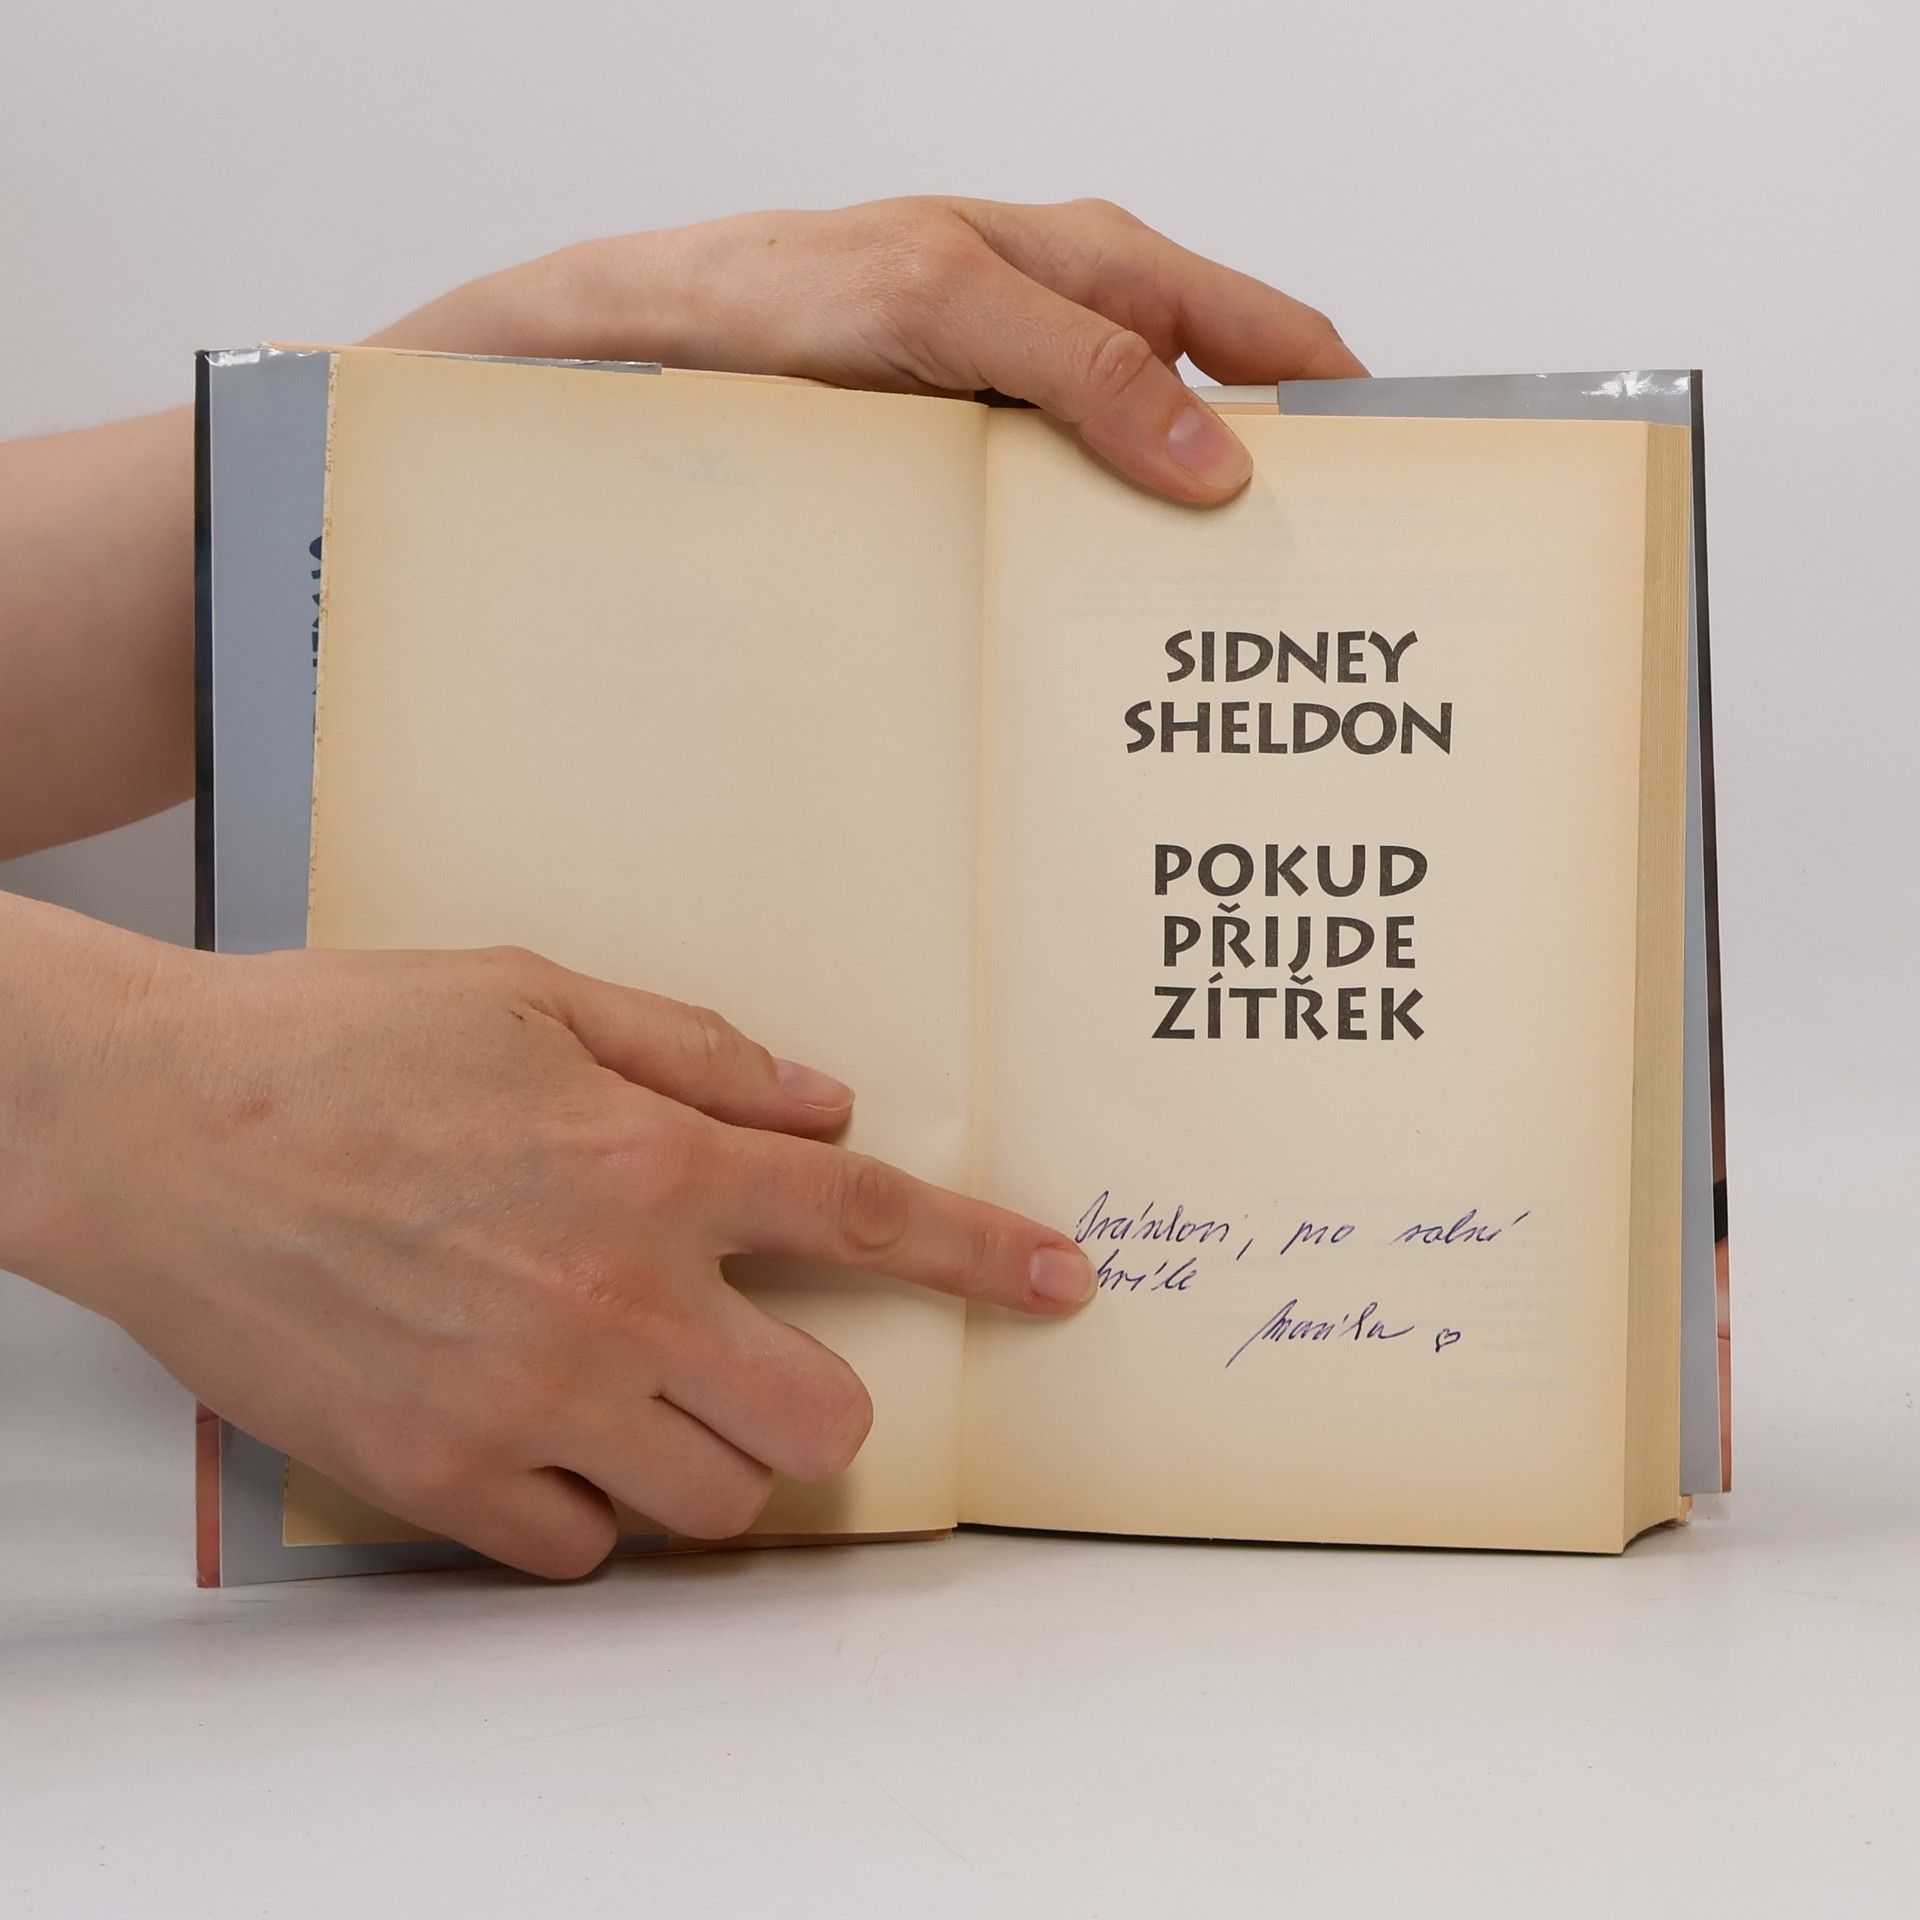 SIDNEY
SHELDON
POKUD
PŘIJDE
ZÍTŘEK
, pro volné
chvíle